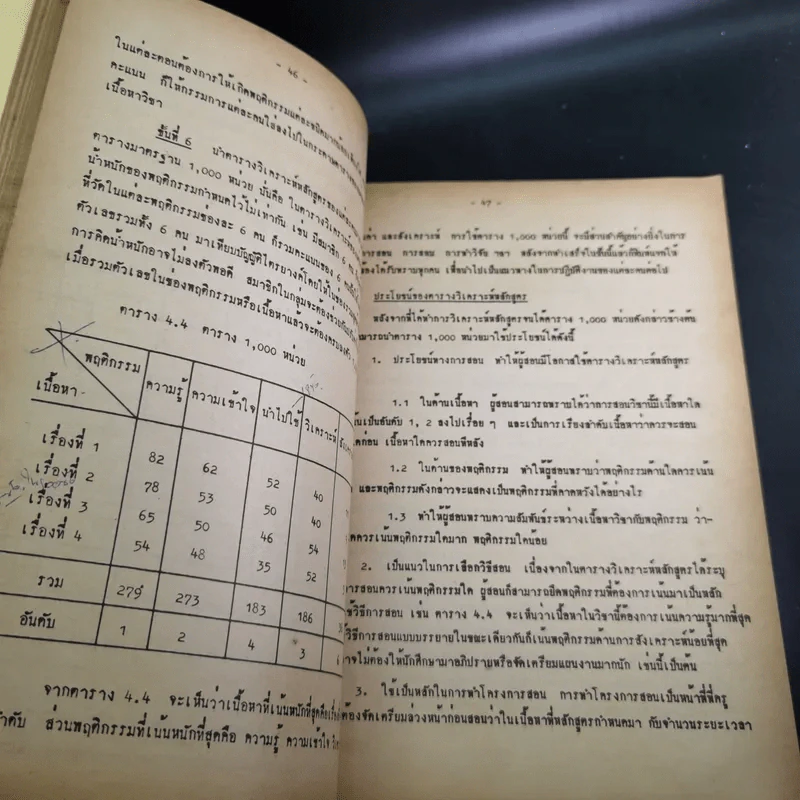 - 46 -
ในแต่ละตอนต้องการให้เกิดพฤติกรรมแต่ละชนิดมากน้อย
คะแนน ก็ให้กรรมการแต่ละคนใส่ลงไปในกระดาษตาราง
เนื้อหาวิชา
ขั้นที่ 6 นำตารางวิเคราะห์หลักสูตรของแต่ละ
ตารางมาตรฐาน 1,000 หน่วย นั่นคือ ในตารางวิเคราะห์
น้ำหนักของพฤติกรรมกำหนดไว้ไม่เท่ากัน เช่น มีสมาชิก 6 คน
ที่วัดในแต่ละพฤติกรรมช่องละ 6 คน ก็รวมคะแนนของ 6 คน
ตัวเลขรวมทั้ง 6 คน มาเทียบบัญญัติไตรยางค์โดยให้
การคิดน้ำหนักอาจไม่ลงตัวพอดี สมาชิกในกลุ่มจะต้องช่วยกัน
เมื่อรวมตัวเลขในช่องพฤติกรรมหรือเนื้อหาแล้วจะต้องครบ
ตาราง 4.4 ตาราง 1,000 หน่วย
พฤติกรรม ความรู้ ความเข้าใจ นำไปใช้ วิเคราะห์
เนื้อหา
เรื่องที่ 1 82 62 52 40
เรื่องที่ 2 78 53 50 40
เรื่องที่ 3 65 50 46 54
เรื่องที่ 4 54 48 35 52
รวม 279 273 183 186
อันดับ 1 2 4 3
จากตาราง 4.4 จะเห็นว่าเนื้อหาที่เน้นหนักที่สุดคือเรื่อง
ลำดับ ส่วนพฤติกรรมที่เน้นหนักที่สุดคือ ความรู้ ความเข้าใจ
- 47 -
และสังเคราะห์ การใช้ตาราง 1,000 หน่วยนี้ จะมีส่วนสำคัญอย่างยิ่งในการ
การสอน การสอบ การทำวิจัย ฯลฯ หลังจากทำเสร็จในขั้นนี้แล้วก็พิมพ์แจกให้
ได้รับทราบทุกคน เพื่อนำไปเป็นแนวทางในการปฏิบัติงานของแต่ละคนต่อไป
ประโยชน์ของตารางวิเคราะห์หลักสูตร
หลังจากที่ได้ทำการวิเคราะห์หลักสูตรจนได้ตาราง 1,000 หน่วยดังกล่าวข้างต้น
สามารถนำตาราง 1,000 หน่วยมาใช้ประโยชน์ได้ดังนี้
1. ประโยชน์ทางการสอน ทำให้ผู้สอนมีโอกาสใช้ตารางวิเคราะห์หลักสูตร
1.1 ในด้านเนื้อหา ผู้สอนสามารถทราบได้ว่าการสอนวิชานี้มีเนื้อหาใด
เป็นอันดับ 1, 2 ลงไปเรื่อย ๆ และเป็นการเรียงลำดับเนื้อหาว่าควรจะสอน
ก่อน เนื้อหาใดควรสอนทีหลัง
1.2 ในด้านของพฤติกรรม ทำให้ผู้สอนทราบว่าพฤติกรรมด้านใดควรเน้น
และพฤติกรรมดังกล่าวจะแสดงเป็นพฤติกรรมที่คาดหวังได้อย่างไร
1.3 ทำให้ผู้สอนทราบความสัมพันธ์ระหว่างเนื้อหาวิชากับพฤติกรรม ว่า-
ใดควรเน้นพฤติกรรมใดมาก พฤติกรรมใดน้อย
2. เป็นแนวในการเลือกวิธีสอน เนื่องจากในตารางวิเคราะห์หลักสูตรได้ระบุ
การสอนควรเน้นพฤติกรรมใด ผู้สอนก็สามารถยึดพฤติกรรมที่ต้องการเน้นมาเป็นหลัก
ใช้วิธีการสอน เช่น ตาราง 4.4 จะเห็นว่าเนื้อหาในวิชานี้ต้องการเน้นความรู้มากที่สุด
ใช้วิธีการสอนแบบบรรยายในขณะเดียวกันก็เน้นพฤติกรรมด้านการสังเคราะห์น้อยที่สุด
อาจไม่ต้องให้นักศึกษามาอภิปรายหรือจัดเตรียมแผนงานมากนัก เช่นนี้เป็นต้น
3. ใช้เป็นหลักในการทำโครงการสอน การทำโครงการสอนเป็นหน้าที่ที่ครู
ต้องจัดเตรียมล่วงหน้าก่อนสอนว่าในเนื้อหาที่หลักสูตรกำหนดมา กับจำนวนระยะเวลา